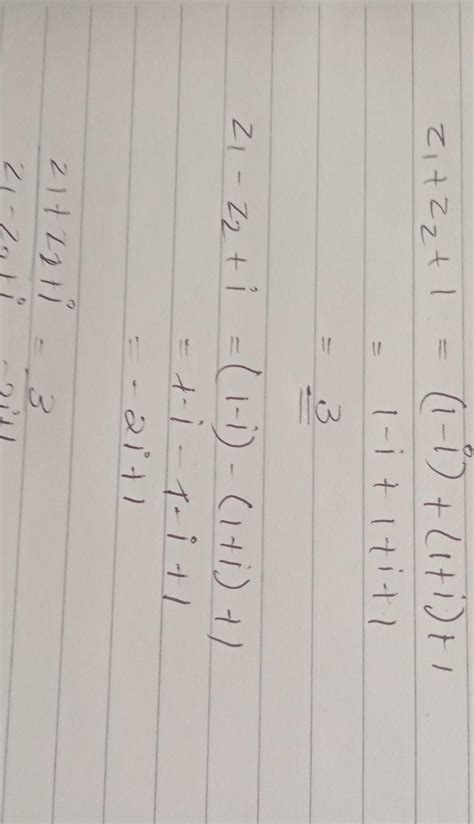 z₁ + z₂ + 1 = (1-i) + (1+i) + 1
= 1 - i + 1 + i + 1
= 3
z₁ - z₂ + i = (1-i) - (1+i) + 1
= 1-i - 1 - i + 1
= - 2i + 1
z₁ + z₂ + i = 3
z₁ - z₂ + i - 2i + 1